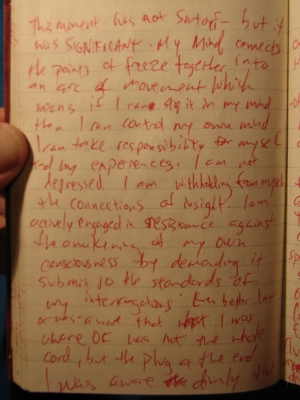 This moment was not Satori - but it
was SIGNIFICANT. My Mind connects
the points of freeze together into
an arc of movement which
means if I can stop it in my mind
then I can control my own mind
I can take responsibility for myself
and my experiences. I am not
depressed I am withholding from myself
the connections of insight. I am
actively engaged in resistance against
the awakening of my own
consciousness by demanding it
submit to the standards of
my interrogations. Even better I am
aware that what I was
aware OF was not the whole
cord, but the plug at the end
I was aware dimly that